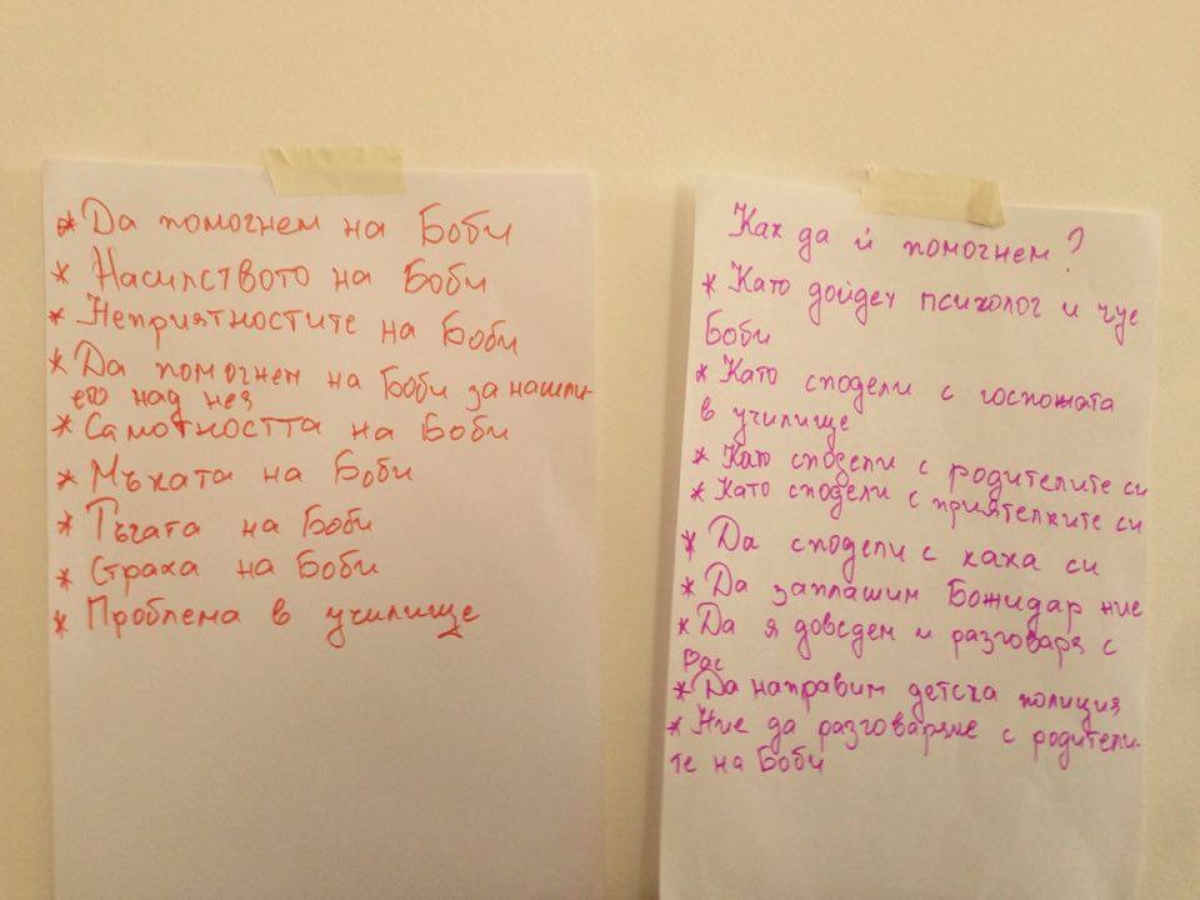 * Да помогнем на Боби
* Насилството на Боби
* Неприятностите на Боби
* Да помогнем на Боби за насили-
его над нея
* Самотността на Боби
* Мъката на Боби
* Тъгата на Боби
* Страха на Боби
* Проблема в училище
Как да ѝ помогнем?
* Като дойдех психолог и чуе
Боби
* Като сподели с госпожата
в училище
* Като сподели с родителите си
* Като сподели с приятелките си
* Да сподели с кака си
* Да заплашим Божидар ние
* Да я доведем и разговаря с
Рас
* Да направим детска полиция
* Ние да разговаряме с родители-
те на Боби